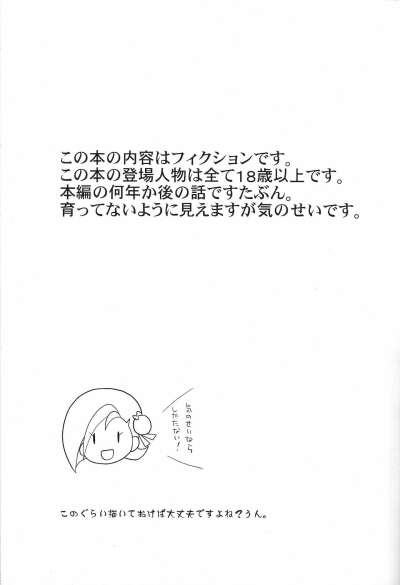 この本の内容はフィクションです。
この本の登場人物は全て18歳以上です。
本編の何年か後の話ですたぶん。
育ってないように見えますが気のせいです。
気のせいなら
しかたない！
このぐらい描いておけば大丈夫ですよね？うん。